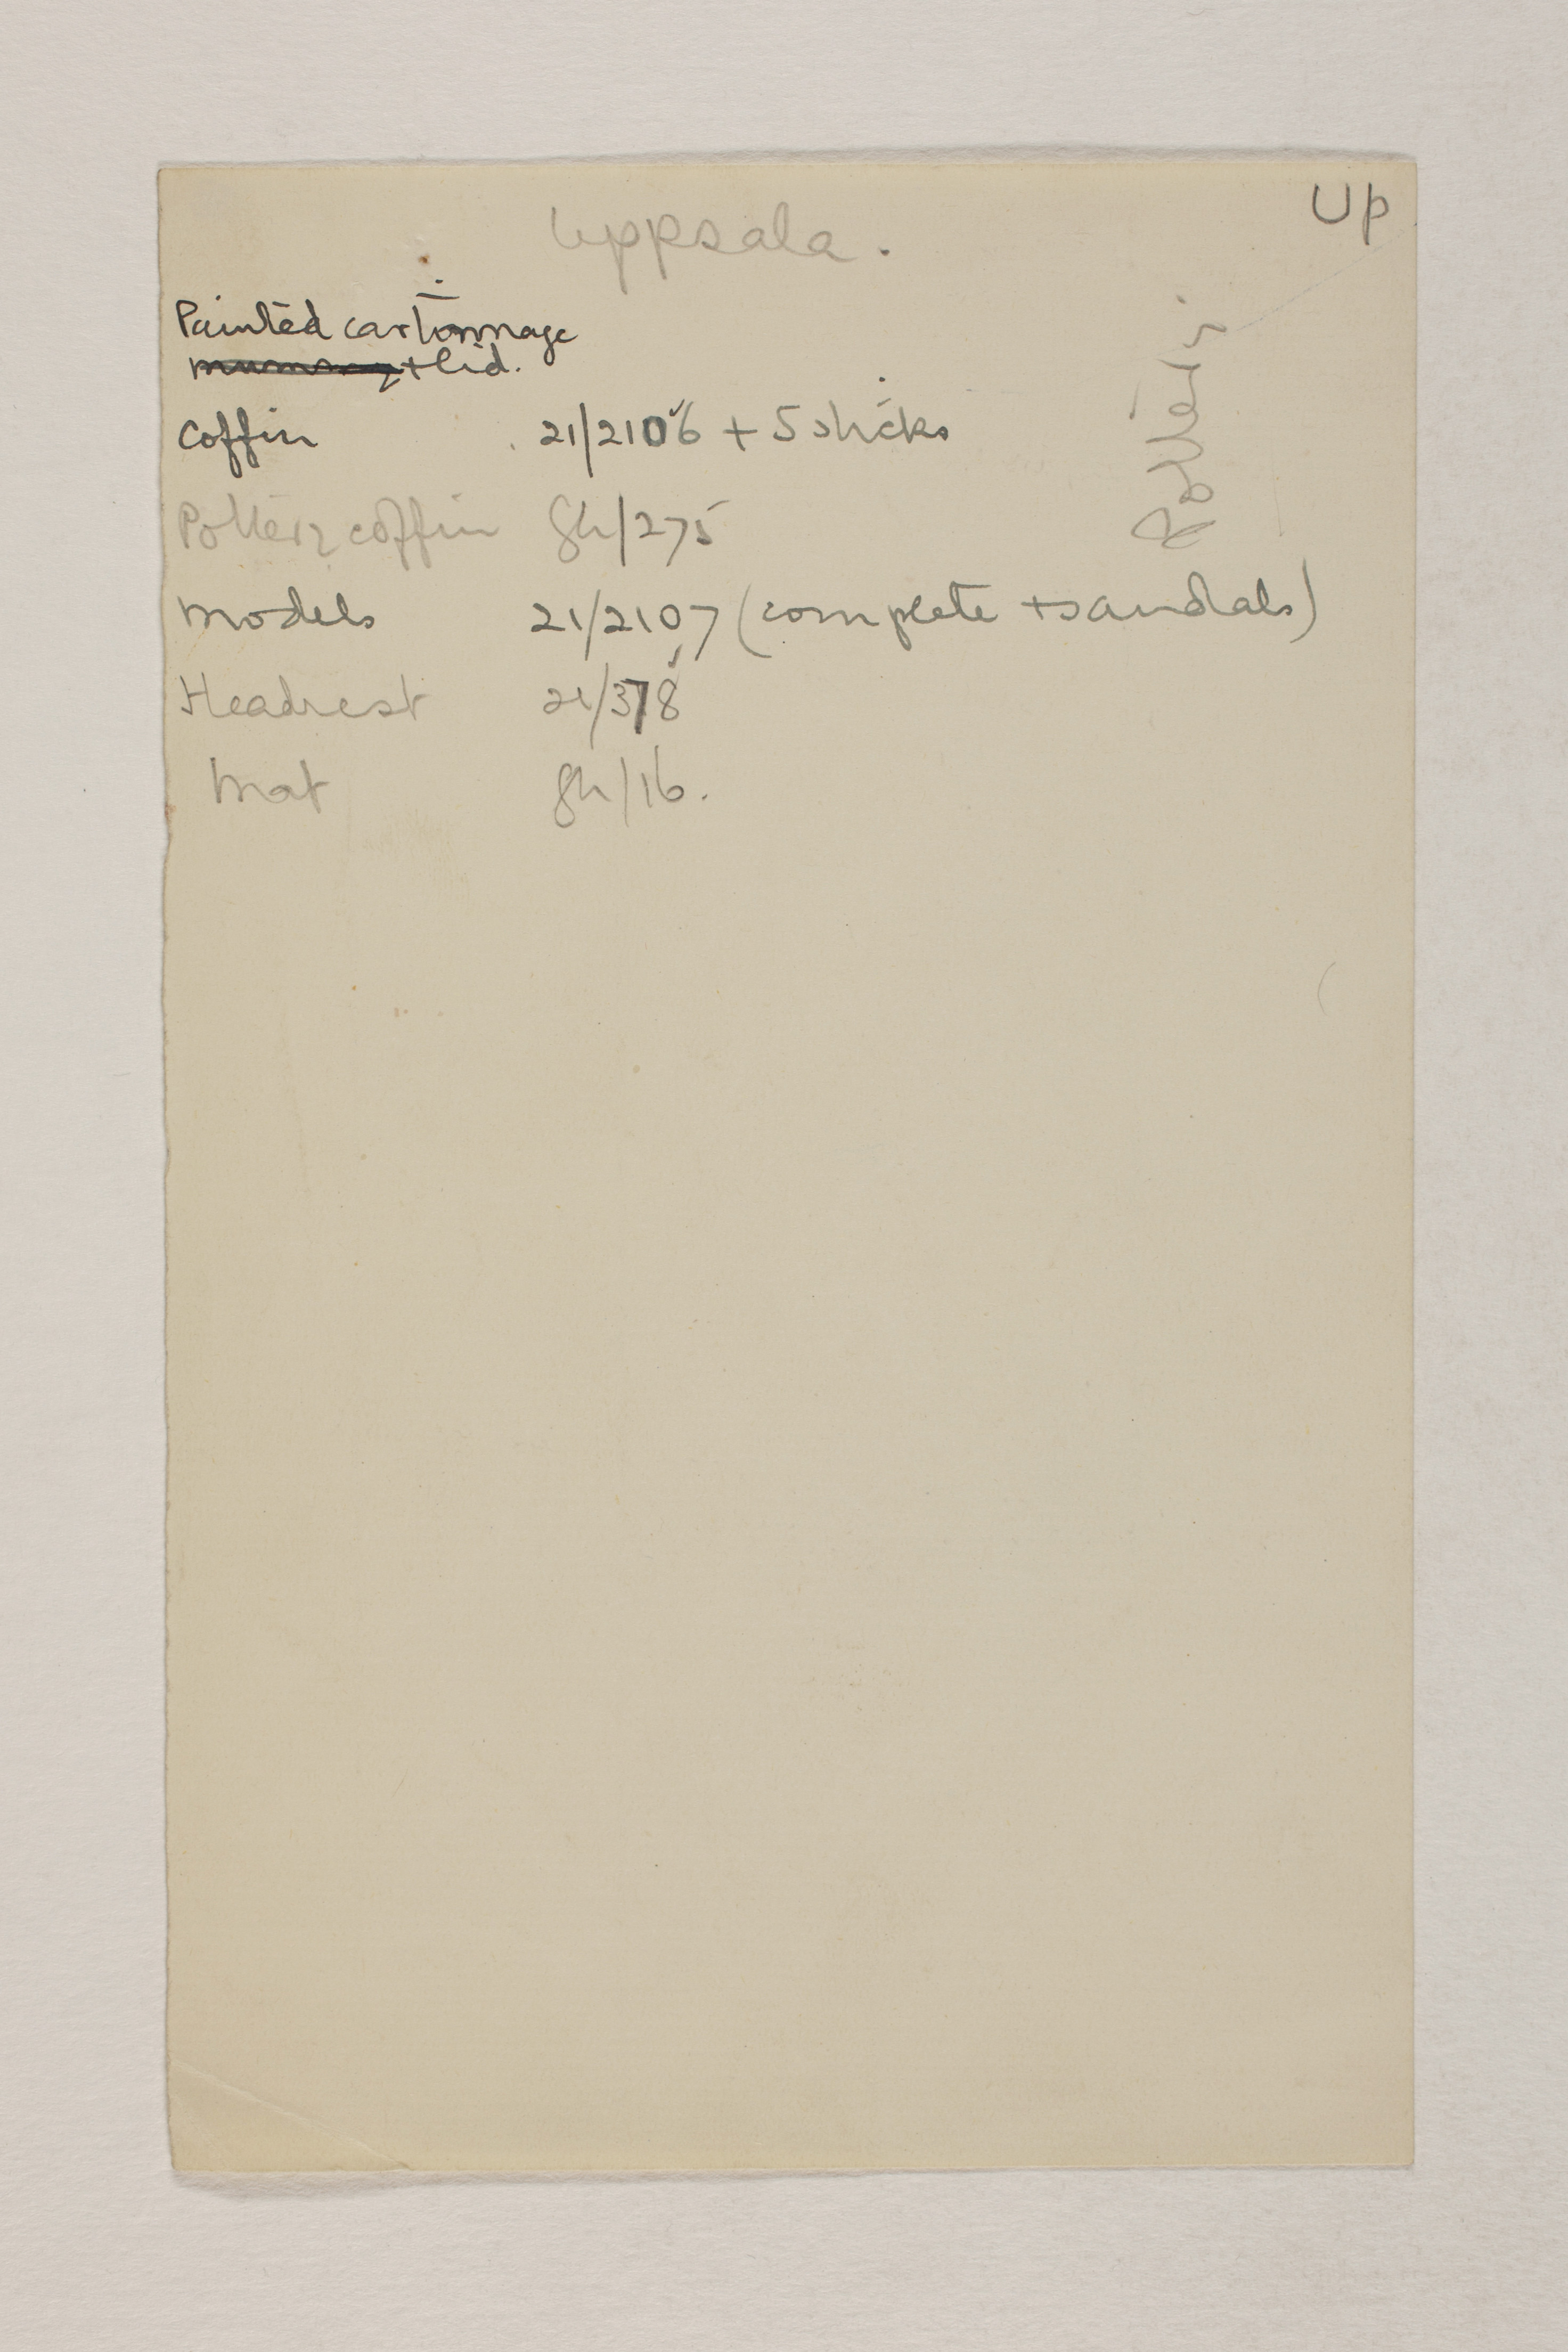 Up
Uppsala.
Painted cartonnage
mummy + lid.
Coffin 21/2106 + 5 sticks
Pottery coffin Gh/275
Models 21/2107 (complete + sandals)
Headrest 21/378
Mat Gh/16.